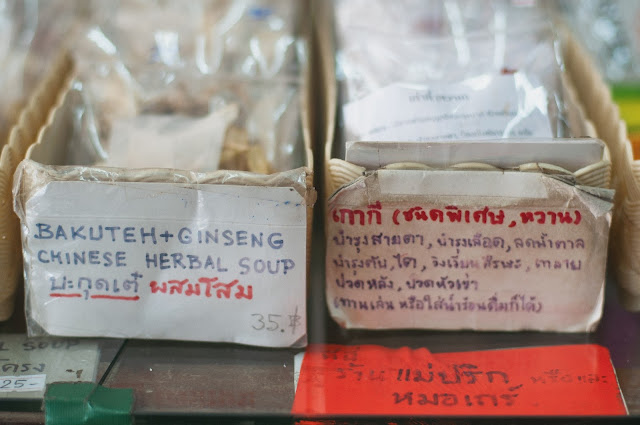 BAKUTEH+GINSENG
CHINESE HERBAL SOUP
บะกุดเต๋ ผสมโสม
35.-฿
เกากี่ (ชนิดพิเศษ, หวาน)
บำรุงสายตา, บำรุงเลือด, ลดน้ำตาล
บำรุงตับ, ไต, วิงเวียนศีรษะ,
ปวดหลัง, ปวดหัวเข่า
(ทานเล่น หรือใส่น้ำร้อนดื่มก็ได้)
SOUP
25.-
ร้านแม่ปริก หรือและ
หมอเถร์